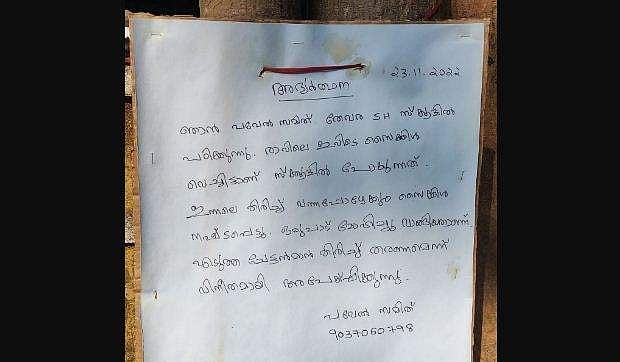 23.11.2022
അഭ്യർത്ഥന
ഞാൻ പവേൽ സമിത് തേവര SH സ്കൂളിൽ
പഠിക്കുന്നു. രാവിലെ ഇവിടെ സൈക്കിൾ
വെച്ചിട്ടാണ് സ്കൂളിൽ പോകുന്നത്.
ഇന്നലെ തിരിച്ച് വന്നപ്പോഴേക്കും സൈക്കിൾ
നഷ്ടപ്പെട്ടു. ഒരുപാട് മോഹിച്ചു വാങ്ങിയതാണ്
എടുത്ത ചേട്ടൻമാർ തിരിച്ച് തരണമെന്ന്
വിനീതമായി അപേക്ഷിക്കുന്നു.
പവേൽ സമിത്
9037060798